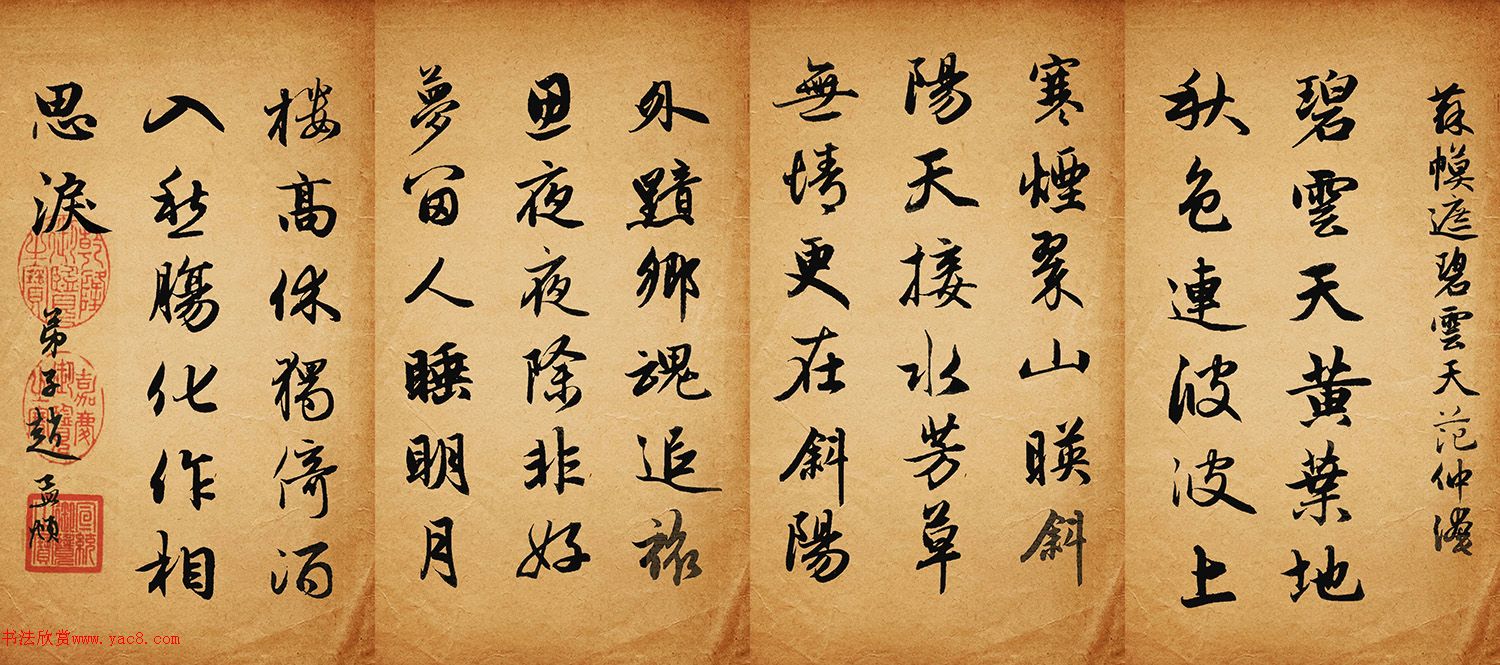 蘇幙遮碧雲天范仲淹
碧雲天黃葉地
秋色連波波上
寒煙翠山暎斜
陽天接水芳草
無情更在斜陽
外黯鄉魂追旅
思夜夜除非好
夢留人睡明月
楼高休獨倚酒
入愁腸化作相
思淚
弟子趙孟頫
乾隆御覽之寶
嘉慶御覽之寶
宣統御覽之寶
书法欣赏www.yac8.com